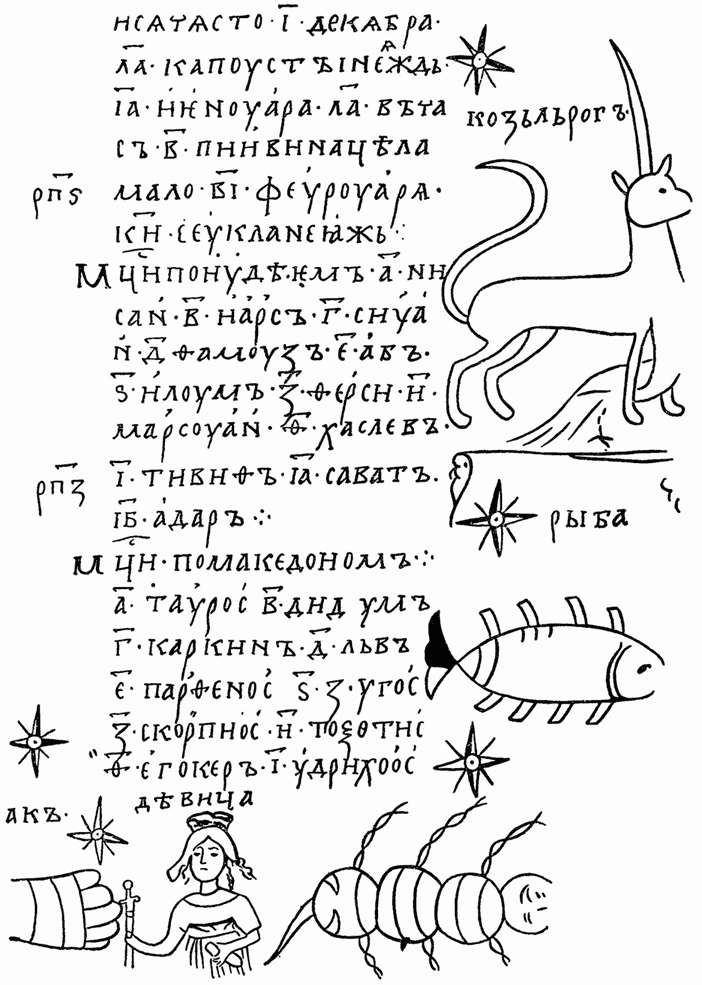 нсѧчѧсто · і҃ · декѧбра ·
ла҃ · капоустъінеѧждь ·
іа҃ · иѥноуара · ла҃ · вѣта
съ · в҃ · пиивинацѣла
рп҃ѕ мало · ві҃ · феуроуарѧ ·
ки҃ · сеукланеꙗжь ⁘
мц҃ипоиудѣѥмъ · а҃ · ни
сан · в҃ · иарсъ · г҃ · сиуа
н · д҃ · ѳамоузъ · е҃ · авъ ·
ѕ҃ · илоумъ · з҃ · ѳерси · и҃ ·
марсоуан · ѳ҃ · хаслевъ ·
рп҃з і҃ · тивиѳъ · іа҃ · саватъ ·
іб҃ · адаръ ⁘
мц҃и · помакедономъ ⁘
а҃ · таурос в҃ · дид умъ
г҃ · каркинъ · д҃ · львъ
е҃ · парѳенос ѕ҃ · з · угос
з҃ · скорпиос · и҃ · тоѯотис
ѳ҃ · егокеръ · і҃ · удрихоос
козьльрогъ ·
рыба
акъ ·
дѣвица